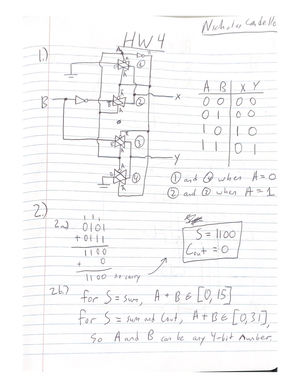 Nicholas
HW4
1.)
B
①
②
③
④
X
Y
A B X Y
0 0 0 0
0 1 0 0
1 0 1 0
1 1 0 1
① and ③ when A=0
② and ④ when A=1
2.)
2a)
1 1 1
0101
+0111
1100
+ 0
1100 no carry
S=1100
Cout=0
2b.)
for S = sum, A+B∈[0,15]
for S = sum and Cout, A+B∈[0,31],
so A and B can be any 4-bit number.